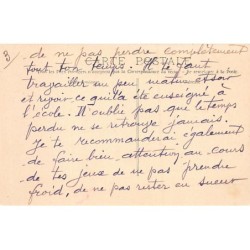 3
de ne pas perdre complètement
tout ton temps. Il faut
CARTE POSTALE
travailler un peu matin et soir
et revoir ce qui t'a été enseigné à
l'école. N'oublie pas que le temps
perdu ne se retrouve jamais.
Je te recommanderai également
de faire bien attention, au cours
de tes jeux de ne pas prendre
froid, de ne pas rester en sueur